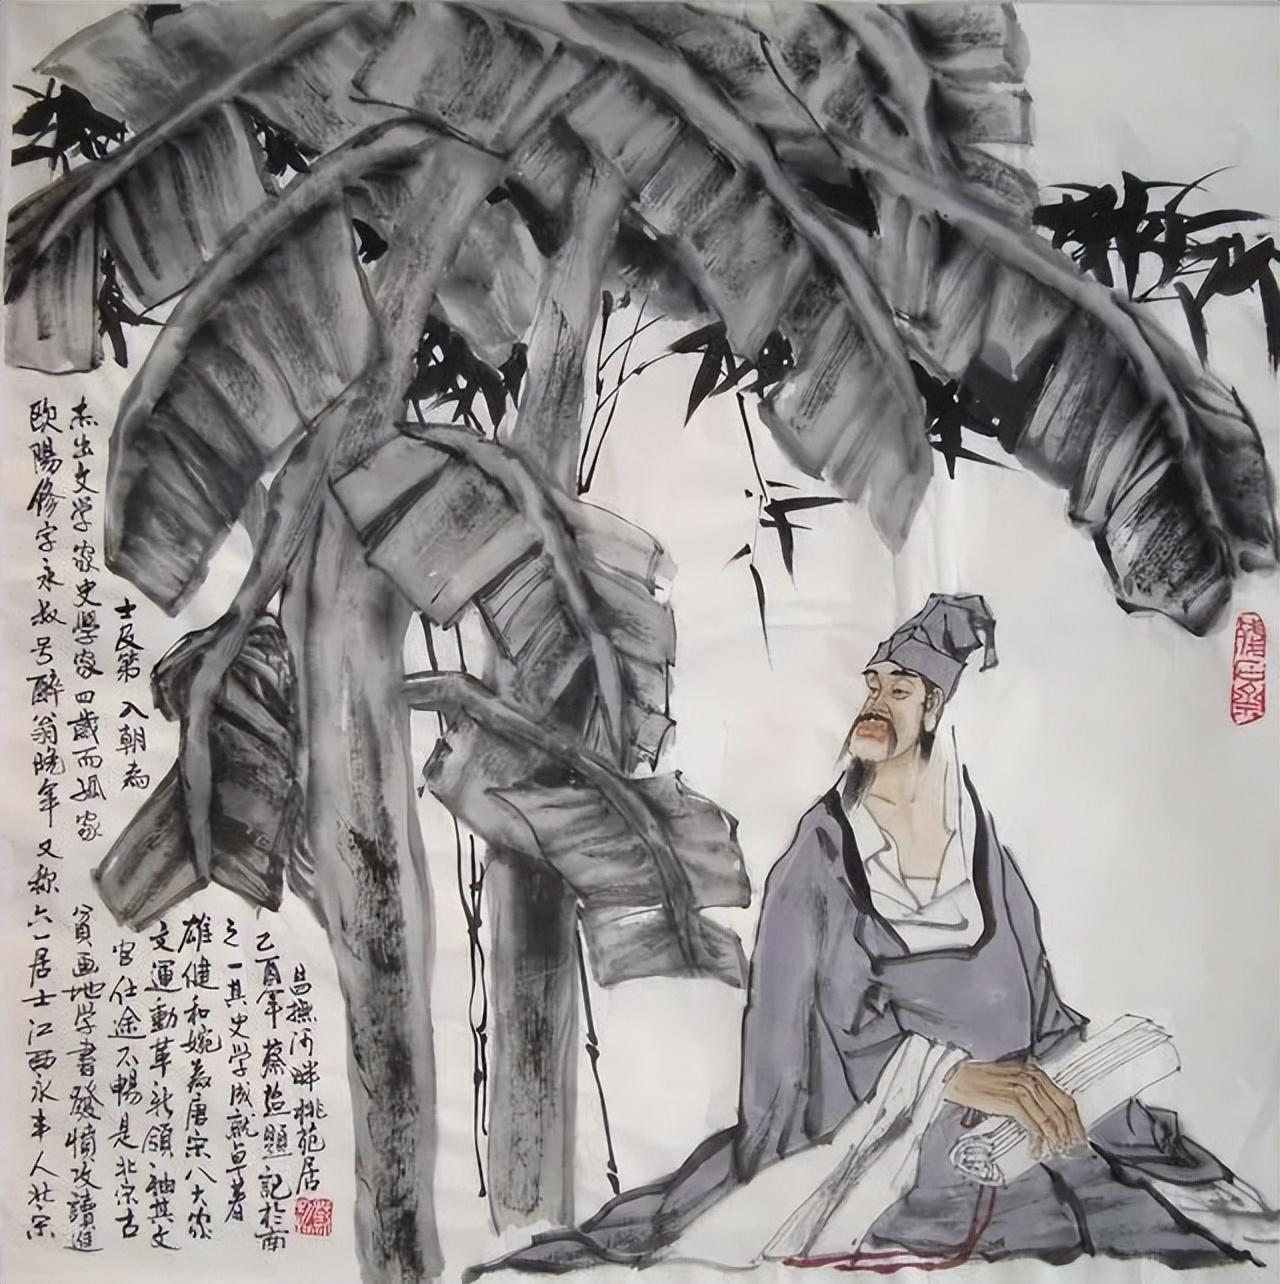 欧陽修字永叔号醉翁晚年又称六一居士江西永丰人北宋
杰出文学家史學家四歲而孤家貧画地学書發憤攻讀進
士及第入朝為官仕途不暢是北宋古
文運動革新領袖其文
雄健和婉為唐宋八大家
之一其史学成就卓著
乙酉年蔡題記於南
昌撫河畔桃苑居